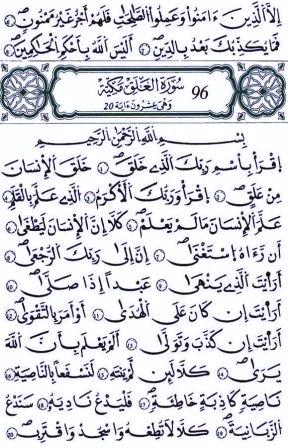 إِلَّا اَ۬لذِينَ ءَامَنُواْ وَعَمِلُواْ اُ۬لصَّٰلِحَٰتِ فَلَهُمُۥٓ أَجْرٌ غَيْرُ مَمْنُونٖ
۝ فَمَا يُكَذِّبُكَ بَعْدُ بِالدِّينِ ۝ أَلَيْسَ اَ۬للَّهُ بِأَحْكَمِ اِ۬لْحَٰكِمِينَ ۝
سُورَةُ الْعَلَقِ مَكِّيَّة 96
وَهِيَ عِشْرُونَ ءَايَة 20
بِسْمِ اِ۬للَّهِ اِ۬لرَّحْمَٰنِ اِ۬لرَّحِيمِ
اِ۪قْرَأْ بِاسْمِ رَبِّكَ اَ۬لذِے خَلَقَ ① خَلَقَ اَ۬لْإِنسَٰنَ
مِنْ عَلَقٍ ② اِ۪قْرَأْ وَرَبُّكَ اَ۬لْأَكْرَمُ ③ اُ۬لذِے عَلَّمَ بِالْقَلَمِ ④
عَلَّمَ اَ۬لْإِنسَٰنَ مَا لَمْ يَعْلَمْ ⑤ كَلَّآ إِنَّ اَ۬لْإِنسَٰنَ لَيَطْغَىٰٓ ⑥
أَن رَّءَاهُ اُ۪سْتَغْنَىٰٓ ⑦ إِنَّ إِلَىٰ رَبِّكَ اَ۬لرُّجْعَىٰٓ ⑧
أَرَٰيْتَ اَ۬لذِے يَنْهَىٰ ⑨ عَبْداً إِذَا صَلَّىٰٓ ⑩
أَرَٰيْتَ إِن كَانَ عَلَى اَ۬لْهُدَىٰٓ ⑪ أَوَ اَمَرَ بِالتَّقْوَىٰٓ ⑫
أَرَٰيْتَ إِن كَذَّبَ وَتَوَلَّىٰٓ ⑬ أَلَمْ يَعْلَم بِأَنَّ اَ۬للَّهَ
يَرَىٰ ⑭ كَلَّا لَئِن لَّمْ يَنتَهِ ⑮ لَنَسْفَعاَۢ بِالنَّاصِيَةِ ⑯
نَاصِيَةٖ كَٰذِبَةٍ خَاطِئَةٖ ⑰ فَلْيَدْعُ نَادِيَهُۥ ⑱ سَنَدْعُ
اُ۬لزَّبَانِيَةَ ⑲ كَلَّا لَا تُطِعْهُ وَاسْجُدْ وَاقْتَرِب ⑳